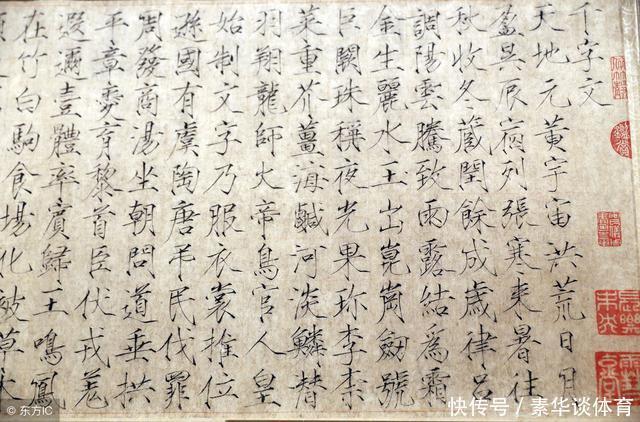 千字文
天地元黃宇宙洪荒日月
盈昃辰宿列張寒来暑往
秋收冬藏閏餘成歲律呂
調陽雲騰致雨露結為霜
金生麗水玉出崑崗劒號
巨闕珠稱夜光果珍李柰
菜重芥薑海鹹河淡鱗潛
羽翔龍師火帝鳥官人皇
始制文字乃服衣裳推位
遜國有虞陶唐弔民伐罪
周發商湯坐朝問道垂拱
平章愛育黎首臣伏戎羌
遐邇壹體率賓歸王鳴鳳
在竹白駒食場化被草木
© 东方IC
快传号/素华谈体育